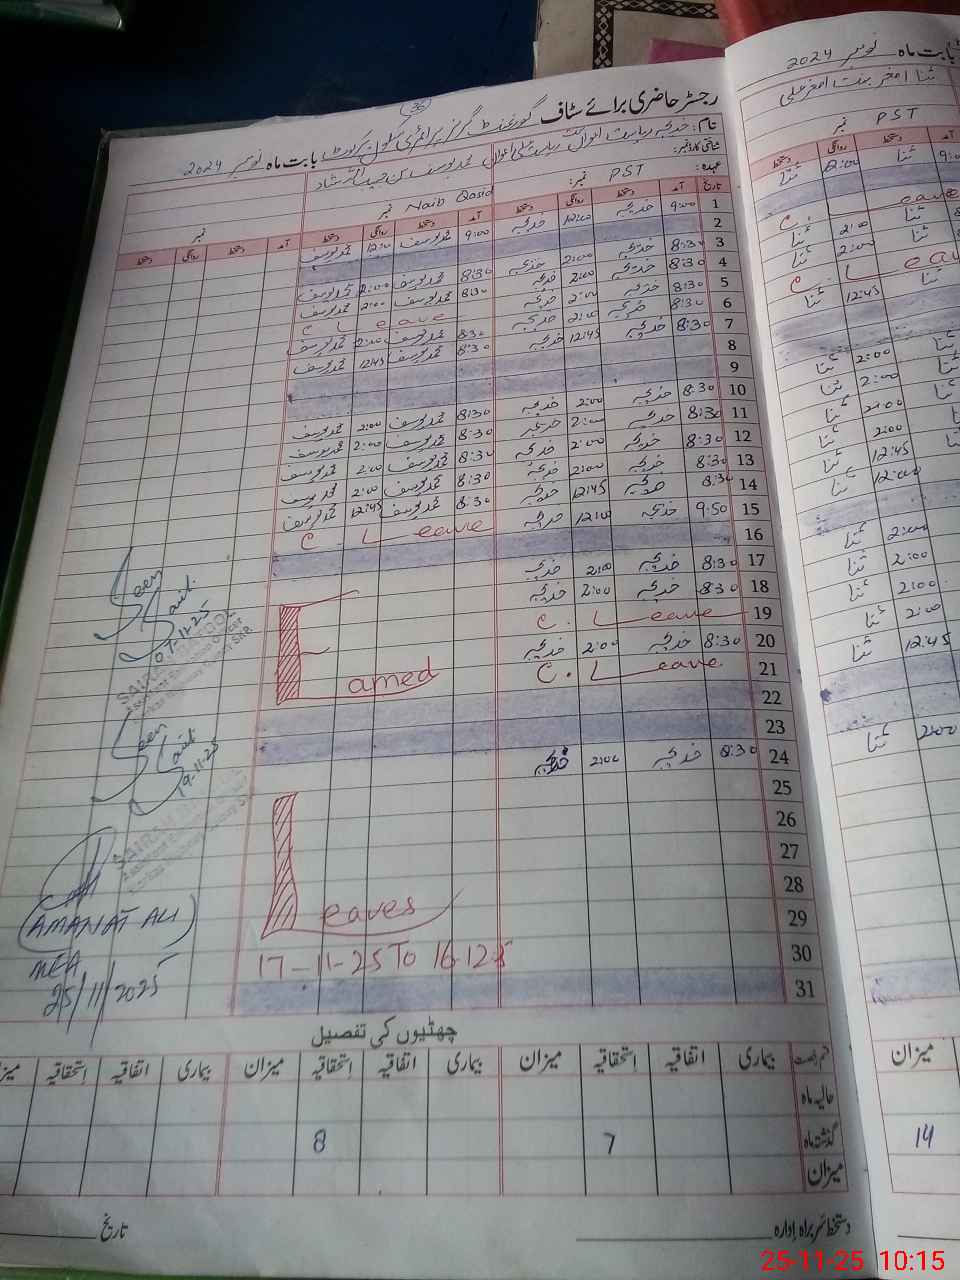 36
رجسٹر حاضری برائے سٹاف گورنمنٹ گرلز پرائمری سکول بابت ماہ نومبر 2024
نام: خدیجہ ریاست اعوان محمد یوسف
شناختی کارڈ نمبر:
عہدہ: PST نمبر: Naib Qasid نمبر نمبر
تاریخ آمد دستخط روانگی دستخط آمد دستخط روانگی دستخط آمد دستخط روانگی دستخط
1 9:00 خدیجہ 12:00 خدیجہ 9:00 محمد یوسف 12:00 محمد یوسف
2
3 8:30 خدیجہ 2:00 خدیجہ 8:30 محمد یوسف 2:00 محمد یوسف
4 8:30 خدیجہ 2:00 خدیجہ 8:30 محمد یوسف 2:00 محمد یوسف
5 8:30 خدیجہ 2:00 خدیجہ C Leave
6 8:30 خدیجہ 2:00 خدیجہ 8:30 محمد یوسف 2:00 محمد یوسف
7 8:30 خدیجہ 12:45 خدیجہ 8:30 محمد یوسف 12:45 محمد یوسف
8
9
10 8:30 خدیجہ 2:00 خدیجہ 8:30 محمد یوسف 2:00 محمد یوسف
11 8:30 خدیجہ 2:00 خدیجہ 8:30 محمد یوسف 2:00 محمد یوسف
12 8:30 خدیجہ 2:00 خدیجہ 8:30 محمد یوسف 2:00 محمد یوسف
13 8:30 خدیجہ 2:00 خدیجہ 8:30 محمد یوسف 2:00 محمد یوسف
14 8:30 خدیجہ 12:45 خدیجہ 8:30 محمد یوسف 12:45 محمد یوسف
15 9:50 خدیجہ 12:00 خدیجہ C. Leave
16
17 8:30 خدیجہ 2:00 خدیجہ
18 8:30 خدیجہ 2:00 خدیجہ
19 C. Leave
20 8:30 خدیجہ 2:00 خدیجہ
21 C. Leave
22
23
24 8:30 خدیجہ 2:00 خدیجہ
25
26
27
28
29
30
31
Earned
Leaves
17-11-25 To 16-12-25
Seen
07-11-25
Seen
19-11-25
(AMANAT ALI)
MEA
25/11/2025
چھٹیوں کی تفصیل
بیماری اتفاقیہ استحقاقیہ میزان بیماری اتفاقیہ استحقاقیہ میزان بیماری اتفاقیہ استحقاقیہ میزان
حالیہ ماہ
گذشتہ ماہ 7 8
میزان
دستخط سربراہ ادارہ
تاریخ
بابت ماہ نومبر 2024
ثنا اصغر بنت اصغر علی
PST
نمبر
آمد دستخط روانگی دستخط
ثنا 12:00 ثنا
C. Leave
ثنا 2:00 ثنا
ثنا 2:00 ثنا
C. Leave
ثنا 12:45 ثنا
ثنا 2:00 ثنا
ثنا 2:00
ثنا 2:00
ثنا 2:00
ثنا 12:45
ثنا 12:00
ثنا 2:00
ثنا 2:00
ثنا 2:00
ثنا 2:00
ثنا 12:45
ثنا 2:00
میزان
14
25-11-25 10:15